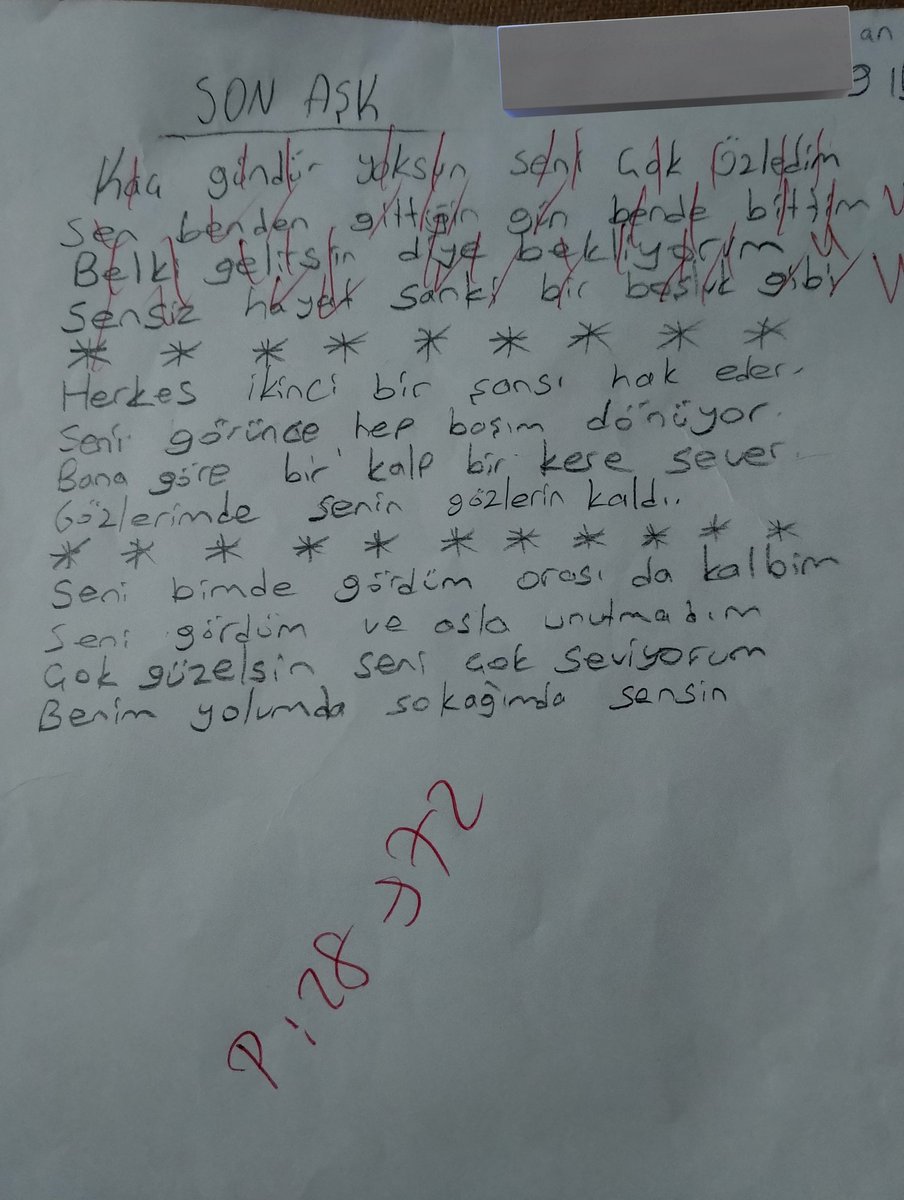 an
3
SON AŞK
Kaç gündür yoksun seni çok özledim
Sen benden gittiğin gün bende bittim
Belki gelirsin diye bekliyorum
Sensiz hayat sanki bir boşluk gibi
* * * * * * * * *
Herkes ikinci bir şansı hak eder.
Seni görünce hep başım dönüyor.
Bana göre bir kalp bir kere sever.
Gözlerimde senin gözlerin kaldı..
* * * * * * * * * * *
Seni bimde gördüm orası da kalbim
Seni gördüm ve asla unutmadım
Çok güzelsin seni çok seviyorum
Benim yolumda sokağımda sensin
P: 28 → 72